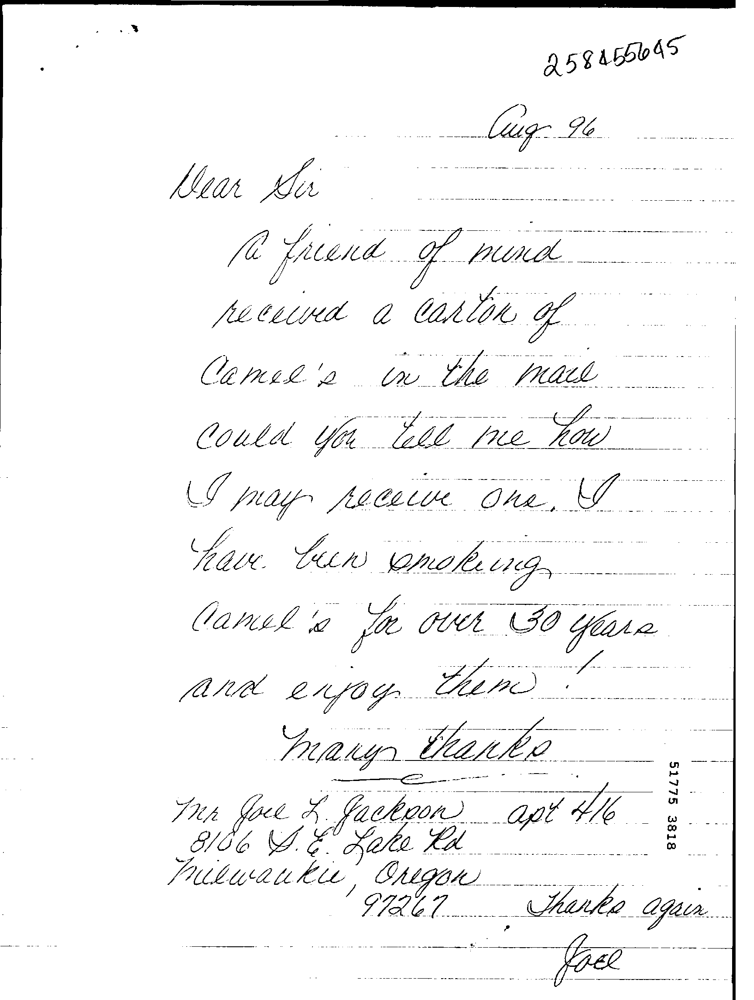 258455645
Aug 96
Dear Sir
A friend of mind
received a carton of
Camel's in the mail
could you tell me how
I may receive one. I
have been smokeing
Camel's for over 30 years
and enjoy them!
Many thanks
Mr Joel L. Jackson apt 416
8106 S.E. Lake Rd
Milwaukie, Oregon
97267 Thanks again
Joel
51775 3818